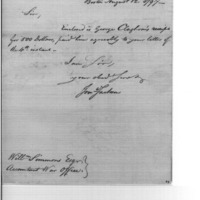 Boston August 12. 1797.
Sir,
Enclosed is George Claghorn's receipt
for 500 dollars, paid him agreeably to your letter of
the 4th instant.
I am Sir,
your obed Serv
Jon Jackson
Will Simmons Esqr
Accountant War Office